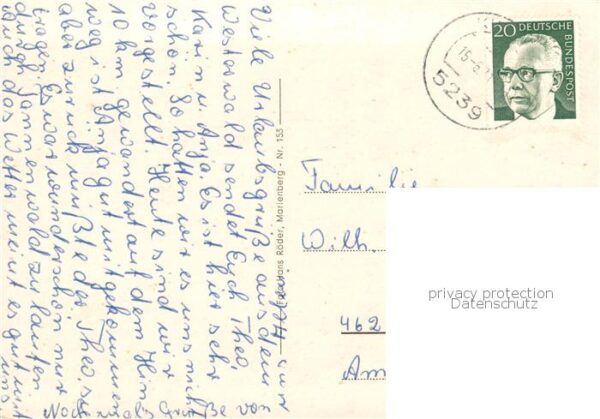 Viele Urlaubsgrüße aus dem
Westerwald sendet Euch Theo,
Karin u. Anja. Es ist hier sehr
schön. So hatten wir es uns nicht
vorgestellt. Heute sind wir
10 km gewandert auf dem Hin
weg ist Anja gut mitgekommen
aber zurück mußte der Theo sie
tragen. Es war wunderschön nur
durch Tannenwald zu laufen
Auch das Wetter meint es gut mit
uns.
Hans Röder, Marienberg - Nr. 153
5239
20 DEUTSCHE BUNDESPOST
Familie
Wilh.
462
Am
privacy protection
Datenschutz